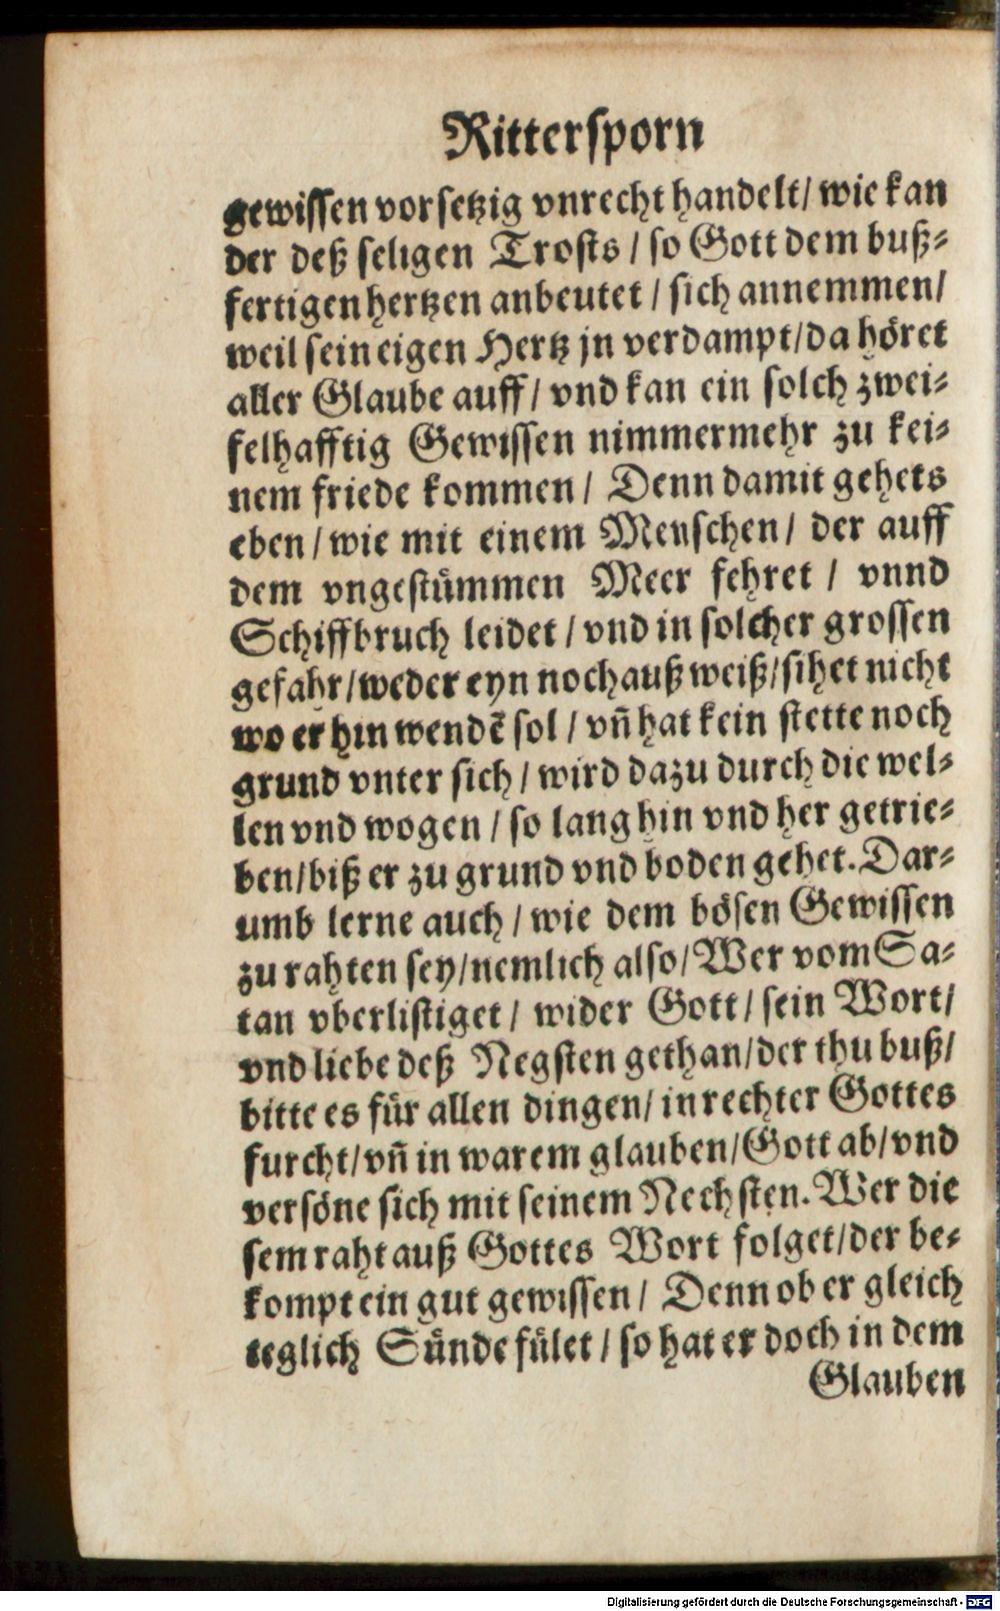 Rittersporn
gewissen vorsetzig vnrecht handelt/ wie kan
der deß seligen Trosts / so Gott dem buß-
fertigen hertzen anbeutet / sich annemmen/
weil sein eigen Hertz jn verdampt/da höret
aller Glaube auff/ vnd kan ein solch zwei-
felhafftig Gewissen nimmermehr zu kei-
nem friede kommen/ Denn damit gehets
eben/ wie mit einem Menschen/ der auff
dem vngestümmen Meer fehret / vnnd
Schiffbruch leidet / vnd in solcher grossen
gefahr/weder eyn noch auß weiß/sihet nicht
wo er hin wendẽ sol / vñ hat kein stette noch
grund vnter sich / wird dazu durch die wel-
len vnd wogen / so lang hin vnd her getrie-
ben/biß er zu grund vnd boden gehet. Dar-
umb lerne auch / wie dem bösen Gewissen
zu rahten sey/nemlich also/ Wer vom Sa-
tan vberlistiget / wider Gott/ sein Wort/
vnd liebe deß Negsten gethan/der thu buß/
bitte es für allen dingen/ in rechter Gottes
furcht/vñ in warem glauben/Gott ab/vnd
versöne sich mit seinem Nechsten. Wer die
sem raht auß Gottes Wort folget/der be-
kompt ein gut gewissen/ Denn ob er gleich
teglich Sünde fület / so hat er doch in dem
Glauben
Digitalisierung gefördert durch die Deutsche Forschungsgemeinschaft - DFG